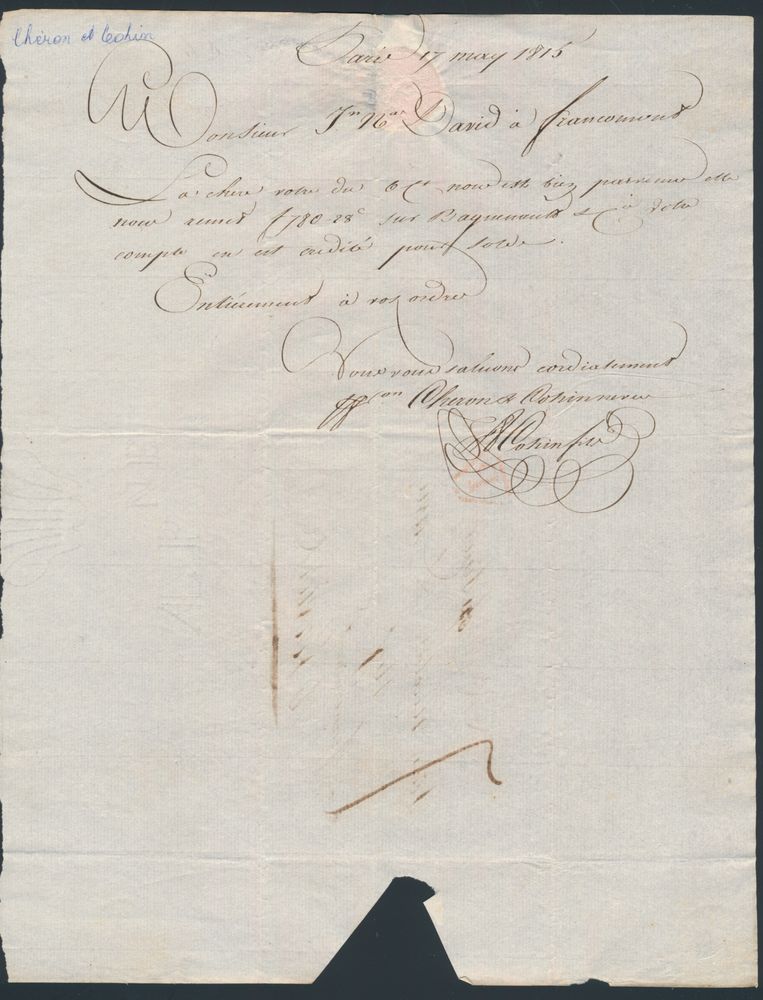 Chéron et Cohin
Paris 17 may 1815
Monsieur Jn Nas David à francomont
La chere votre du 6 Ct nous est bien parvenue elle
nous remet f 780-28c sur Bagenault & Cie votre
compte en est credité pour solde.
Entierement à vos ordres
Nous vous saluons cordialement
ppon Cheron & Cohin
Cohin fils